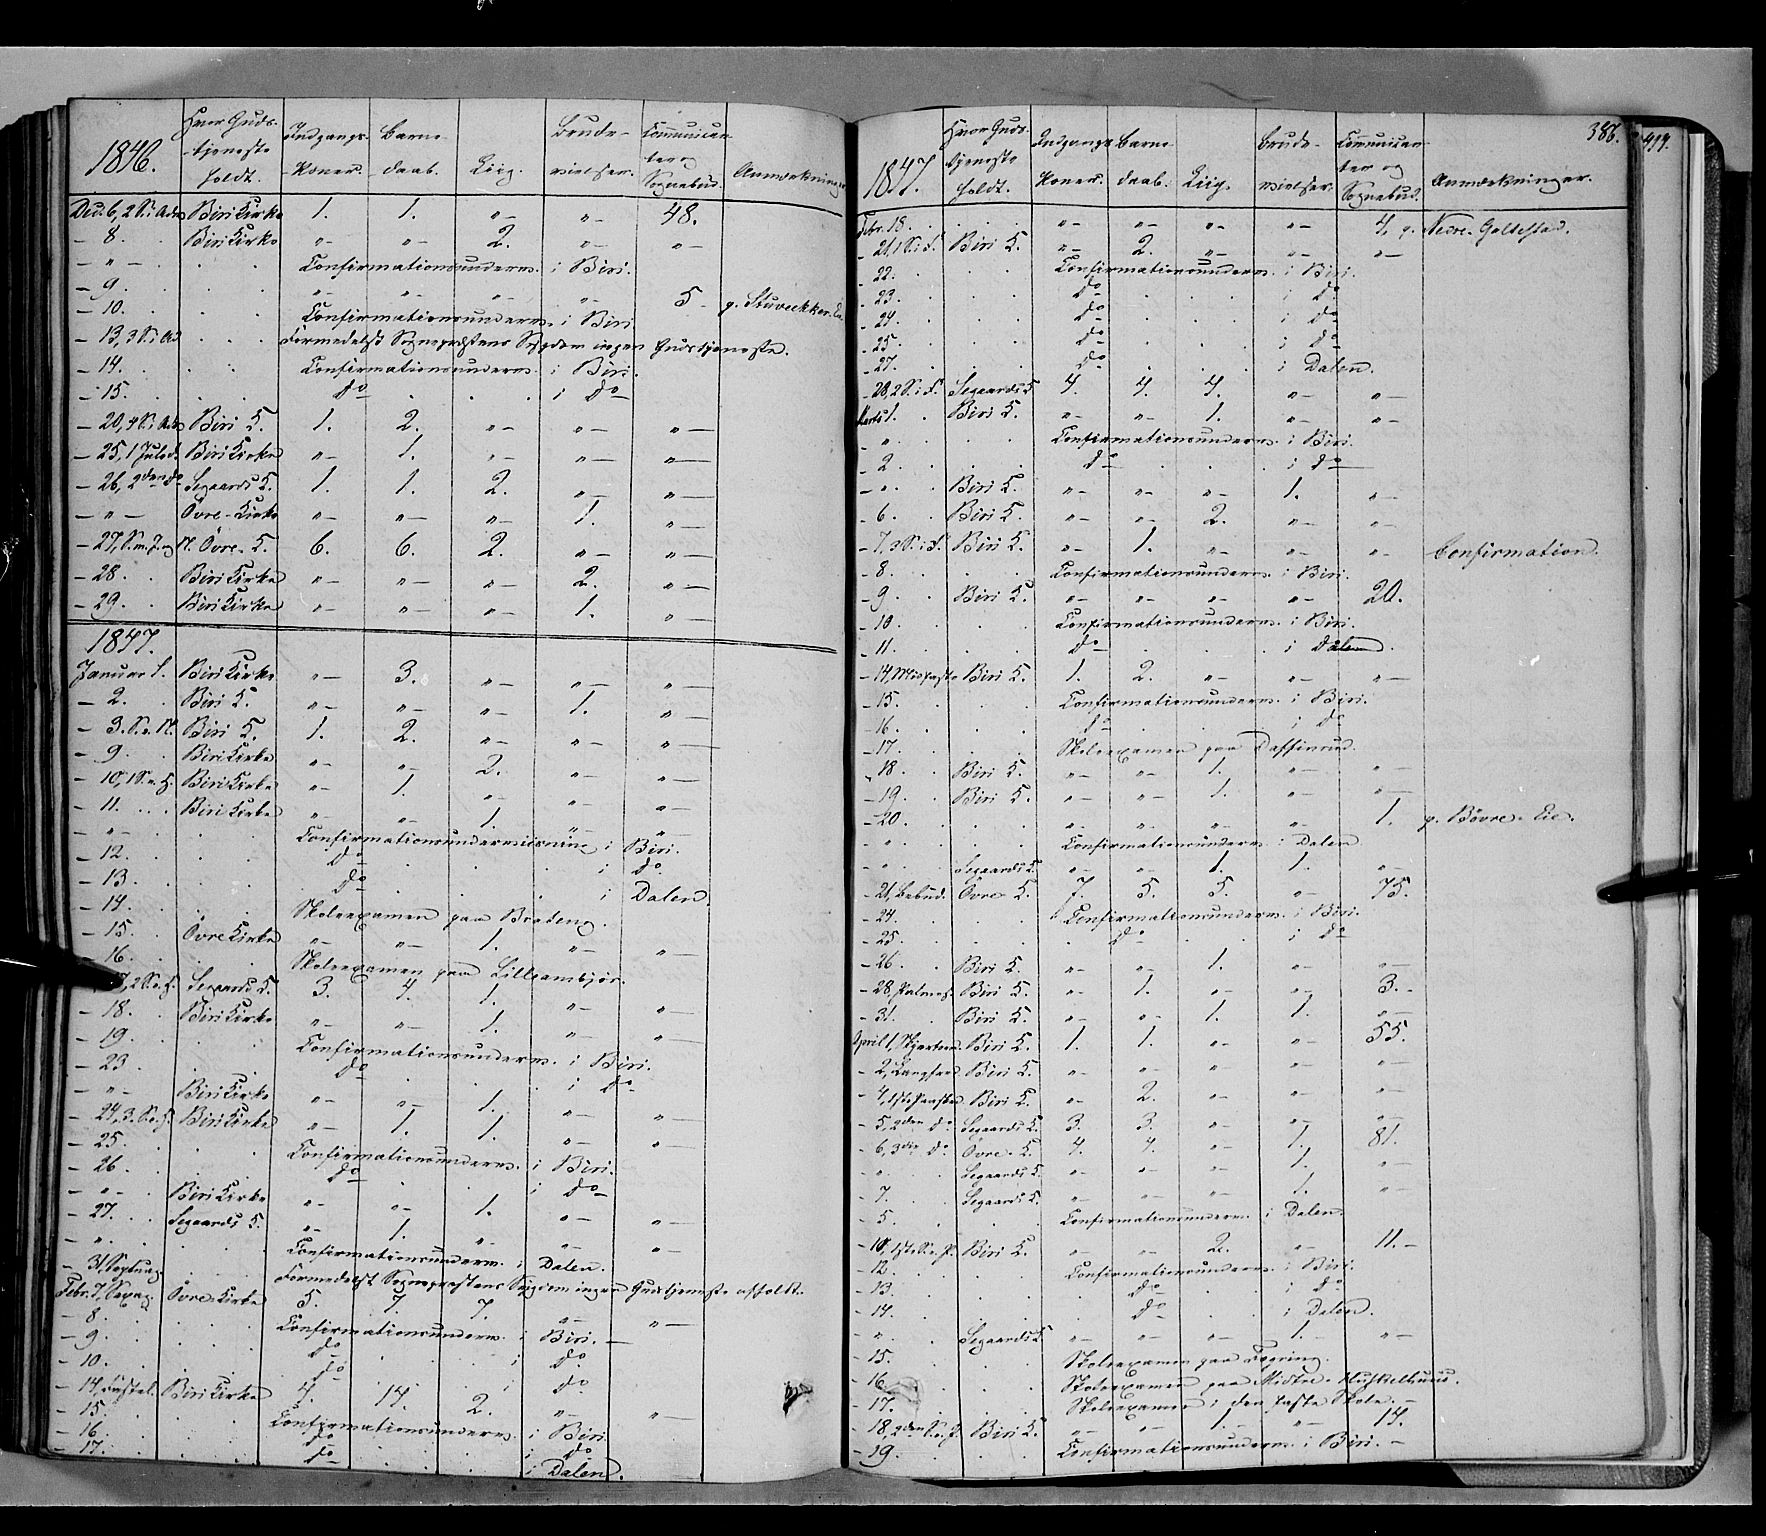 1846. Hvor Guds-tjeneste holdt. Indgangs-Koner. Barne-daab. Liig. Brude-vielser. Communicanter og Sognebud. Anmærkninger
Dec. 6, 2 S. i Adv. Biri Kirke 1. 1. "- "- 48.
- 8. Biri Kirke "- "- 2. "- "-
- "- Confirmationsunderv. i Biri.
- 9. "- "- "- "- 5 - p.
- 10. Confirmationsunderv. i Biri
- 13, 3 S. i Ad. Formedelst Sognepræstens Sygdom ingen Gudstjeneste.
- 14. Confirmationsunderv. i Biri.
- 15. do i do
- 20, 4 S. i Adv. Biri K. 1. 2. "- "- "-
- 25, 1 Juled. Biri Kirke "- 1. "- "- "-
- 26, 2den do Segaards K. 1. 1. 2. "- "-
- "- Övre-Kirke "- "- "- 1. "-
- 27, S. m. J. og N. Övre-K. 6. 6. 2. "- "-
- 28. Biri Kirke "- "- "- 2. "-
- 29. Biri Kirke "- "- "- 1. "-
1847.
Januar 1. Biri Kirke "- 3. "- "- "-
- 2. Biri K. "- "- "- 1. "-
- 3. S. e. N. Biri K. 1. 2. "- "- "-
- 9. Biri Kirke "- "- 2. "- "-
- 10, 1 S. e. H. Biri Kirke "- 1. "- "- "-
- 11. Biri Kirke "- "- 1. "- "-
- "- Confirmationsunderviisning i Biri.
- 12. do i do
- 13. do i Dalen
- 14. Skoleexamen paa Braateng.
- 15. Övre Kirke "- "- 1. "- "-
- 16. Skoleexamen paa
17, 2 S. e. H. Segaards K. 3. 4. 1. "- "-
- 18. Biri Kirke "- "- 1. "- "-
- 19. Confirmationsunderv. i Biri.
- 23. do i do
- "- Biri Kirke "- "- 1. "- "-
- 24, 3. S. e. H. Biri Kirke "- 1. 1. "- "-
- 25. Confirmationsunderv. i Biri.
- 26. do i do
- "- Biri Kirke "- "- 1. "- "-
- 27. Segaards K. "- 1. "- "- "-
- ". Confirmationsunderv. i Dalen.
- 31, Septuag. Formedelst Sognepræstens Sygdom ingen Gudstjeneste afholdt.
Febr. 7, Sexag. Övre Kirke 5. 7. 7. "- "-
- 8. Confirmationsunderv. i Biri. -
- 9. do i do
- 10. do i do
- 14, Fastel. Biri Kirke 4. 14. 2. "- "-
- 15. Confirmationsunderv. i Biri.
- 16. do i do
- 17. do i Dalen.
386. 419.
1847. Hvor Guds-tjeneste holdt. Indgangs Koner. Barne daab. Liig. Brude-vielser. Communicanter og Sognebud. Anmærkninger.
Febr. 18. "- "- "- "- 4, p. Nedre-
- 21, 1 S. i F. Biri K. "- 2. "- "- "-
- 22. Confirmationsunderv. i Biri.
- 23. do i do
- 24. do i do
- 25. do i do
- 27. do i Dalen.
- 28, 2 S. i F. Segaards K. 4. 4. 4. "- "-
Marts 1. Biri K. "- "- 1. "- "-
- ". Confirmationsunderv. i Biri.
- 2. do i do
- ". Biri K. "- "- "- 1. "-
- 6. Biri K. "- "- 2. "- "-
- 7, 3 S. i F. Biri K. "- 1. "- "- "- Confirmation.
- 8. Confirmationsunderv. i Biri.
- 9. Biri K. "- "- "- "- 20.
- 10. Confirmationsunderv. i Biri.
- 11. do i Dalen.
- 14, Midfaste Biri K. 1. 2. "- "- "-
- 15. Confirmationsunderv. i Biri.
- 16. do i do
- 17. Skoleexamen paa
- 18. Biri K. "- "- 1. "- "-
- 19. Biri K. "- "- 1. "- "-
- 20. "- "- "- "- 1. p. Bövre-Eie.
- ". Confirmationsunderv. i Dalen
- ". Segaards K. "- "- 1. 1. "-
- 21, Bebud. Övre K. 7. 5. 5. "- 75.
- 24. Confirmationsunderv. i Biri.
- 25. do i do
- 26. Biri K. "- "- 1. "- "-
- 28, Palmes. Biri K. "- 1. "- "- 3. -
- 31. Biri K. "- "- 1. 1. "-
April 1, Skjærtors. Biri K. 1. 1. "- "- 55.
- 2, Langfred. Biri K. "- "- "- "- "-
- 4, 1ste Paasked. Biri K. "- 2. "- "- "-
- 5, 2den do Segaards K. 3. 3. "- "- "-
- 6, 3die do Övre-K. 4. 4. "- 1. 81.
- ". Segaards K. "- "- "- 1. "-
- 7. Segaards K. "- "- "- 1. "-
- 5. Confirmationsunderv. i Dalen.
- 10, 1ste S. e. P. Biri K. "- "- 2. "- 11. -
- 12. Confirmationsunderv. i Biri.
- 13. do i do
- 14. do i Dalen.
- ". Segaards K. "- "- "- 1. "-
- 15. Skoleexamen paa
- 16. Skoleexamen paa Midtre-
- 17. Skoleexamen i den faste Skole. -
- 18, 2den S. e. P. Biri K. "- "- 1. "- 14.
- 19. Confirmationsunderv. i Biri. -